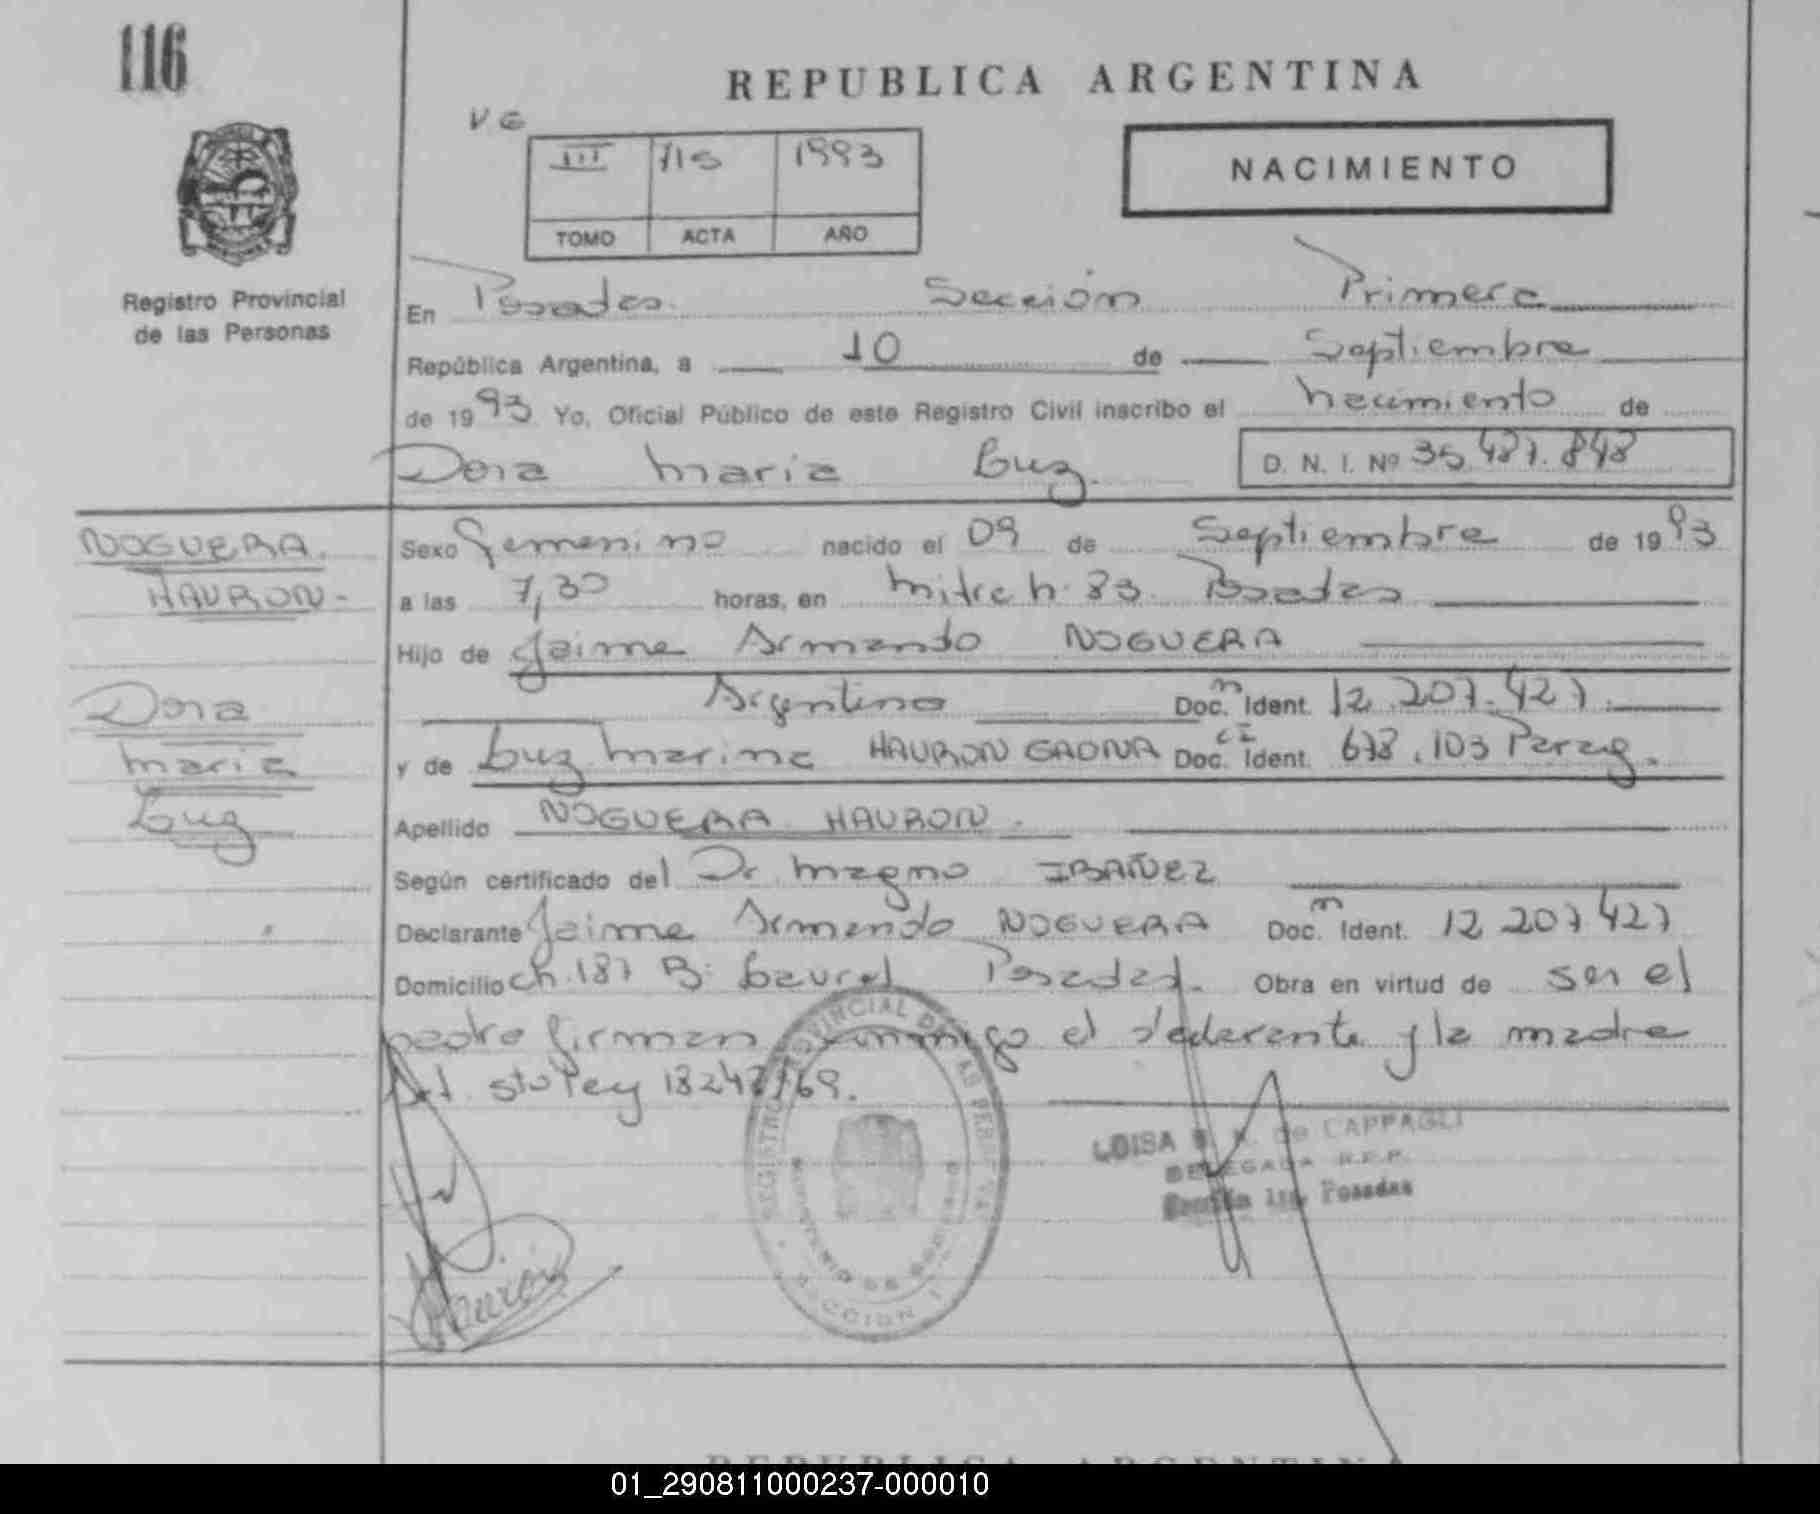 116
REPUBLICA ARGENTINA
VG
III 715 1993
TOMO ACTA AÑO
NACIMIENTO
Registro Provincial
de las Personas
En Posadas Sección Primera
República Argentina, a 10 de Septiembre
de 1993 Yo, Oficial Público de este Registro Civil inscribo el nacimiento de
Dora maria Luz D. N. I. Nº 35.487.848
NOGUERA
HAURON-
Dora
maria
Luz
Sexo Femenino nacido el 09 de Septiembre de 1993
a las 7,30 horas, en mitre h. 83 Posadas
Hijo de Jaime Armando NOGUERA
Argentino Doc. m Ident. 12.207.427.
y de Luz marina HAURON GAONA Doc. CI Ident. 678.103 Parag.
Apellido NOGUERA HAURON.
Según certificado del Dr magno IBAÑEZ
Declarante Jaime Armando NOGUERA Doc. m Ident. 12 207 427
Domicilio ch. 187 B: Laurel Posadas. Obra en virtud de ser el
padre firman conmigo el declarante y la madre
sto ley 18248/69.
REGISTRO PROVINCIAL DE LAS PERSONAS
MINISTERIO DE GOBIERNO
SECCION 1
LUISA de CAPPAGLI
DELEGADA R.P.P.
Sección 1ra. Posadas
Hauron
REPUBLICA ARGENTIN
01_290811000237-000010